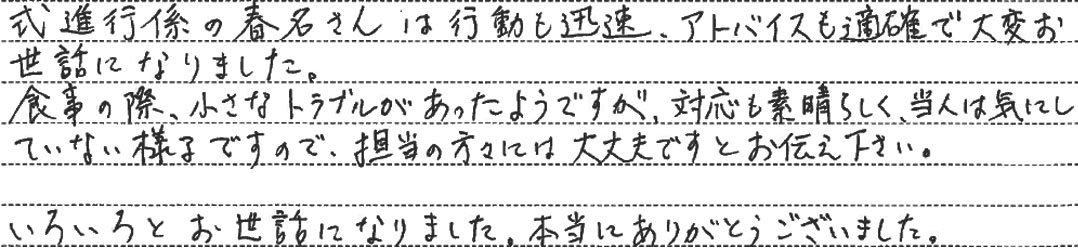 式進行係の春名さんは行動も迅速、アドバイスも適確で大変お
世話になりました。
食事の際、小さなトラブルがあったようですが、対応も素晴らしく、当人は気にし
ていない様子ですので、担当の方々には大丈夫ですとお伝え下さい。
いろいろとお世話になりました。本当にありがとうございました。